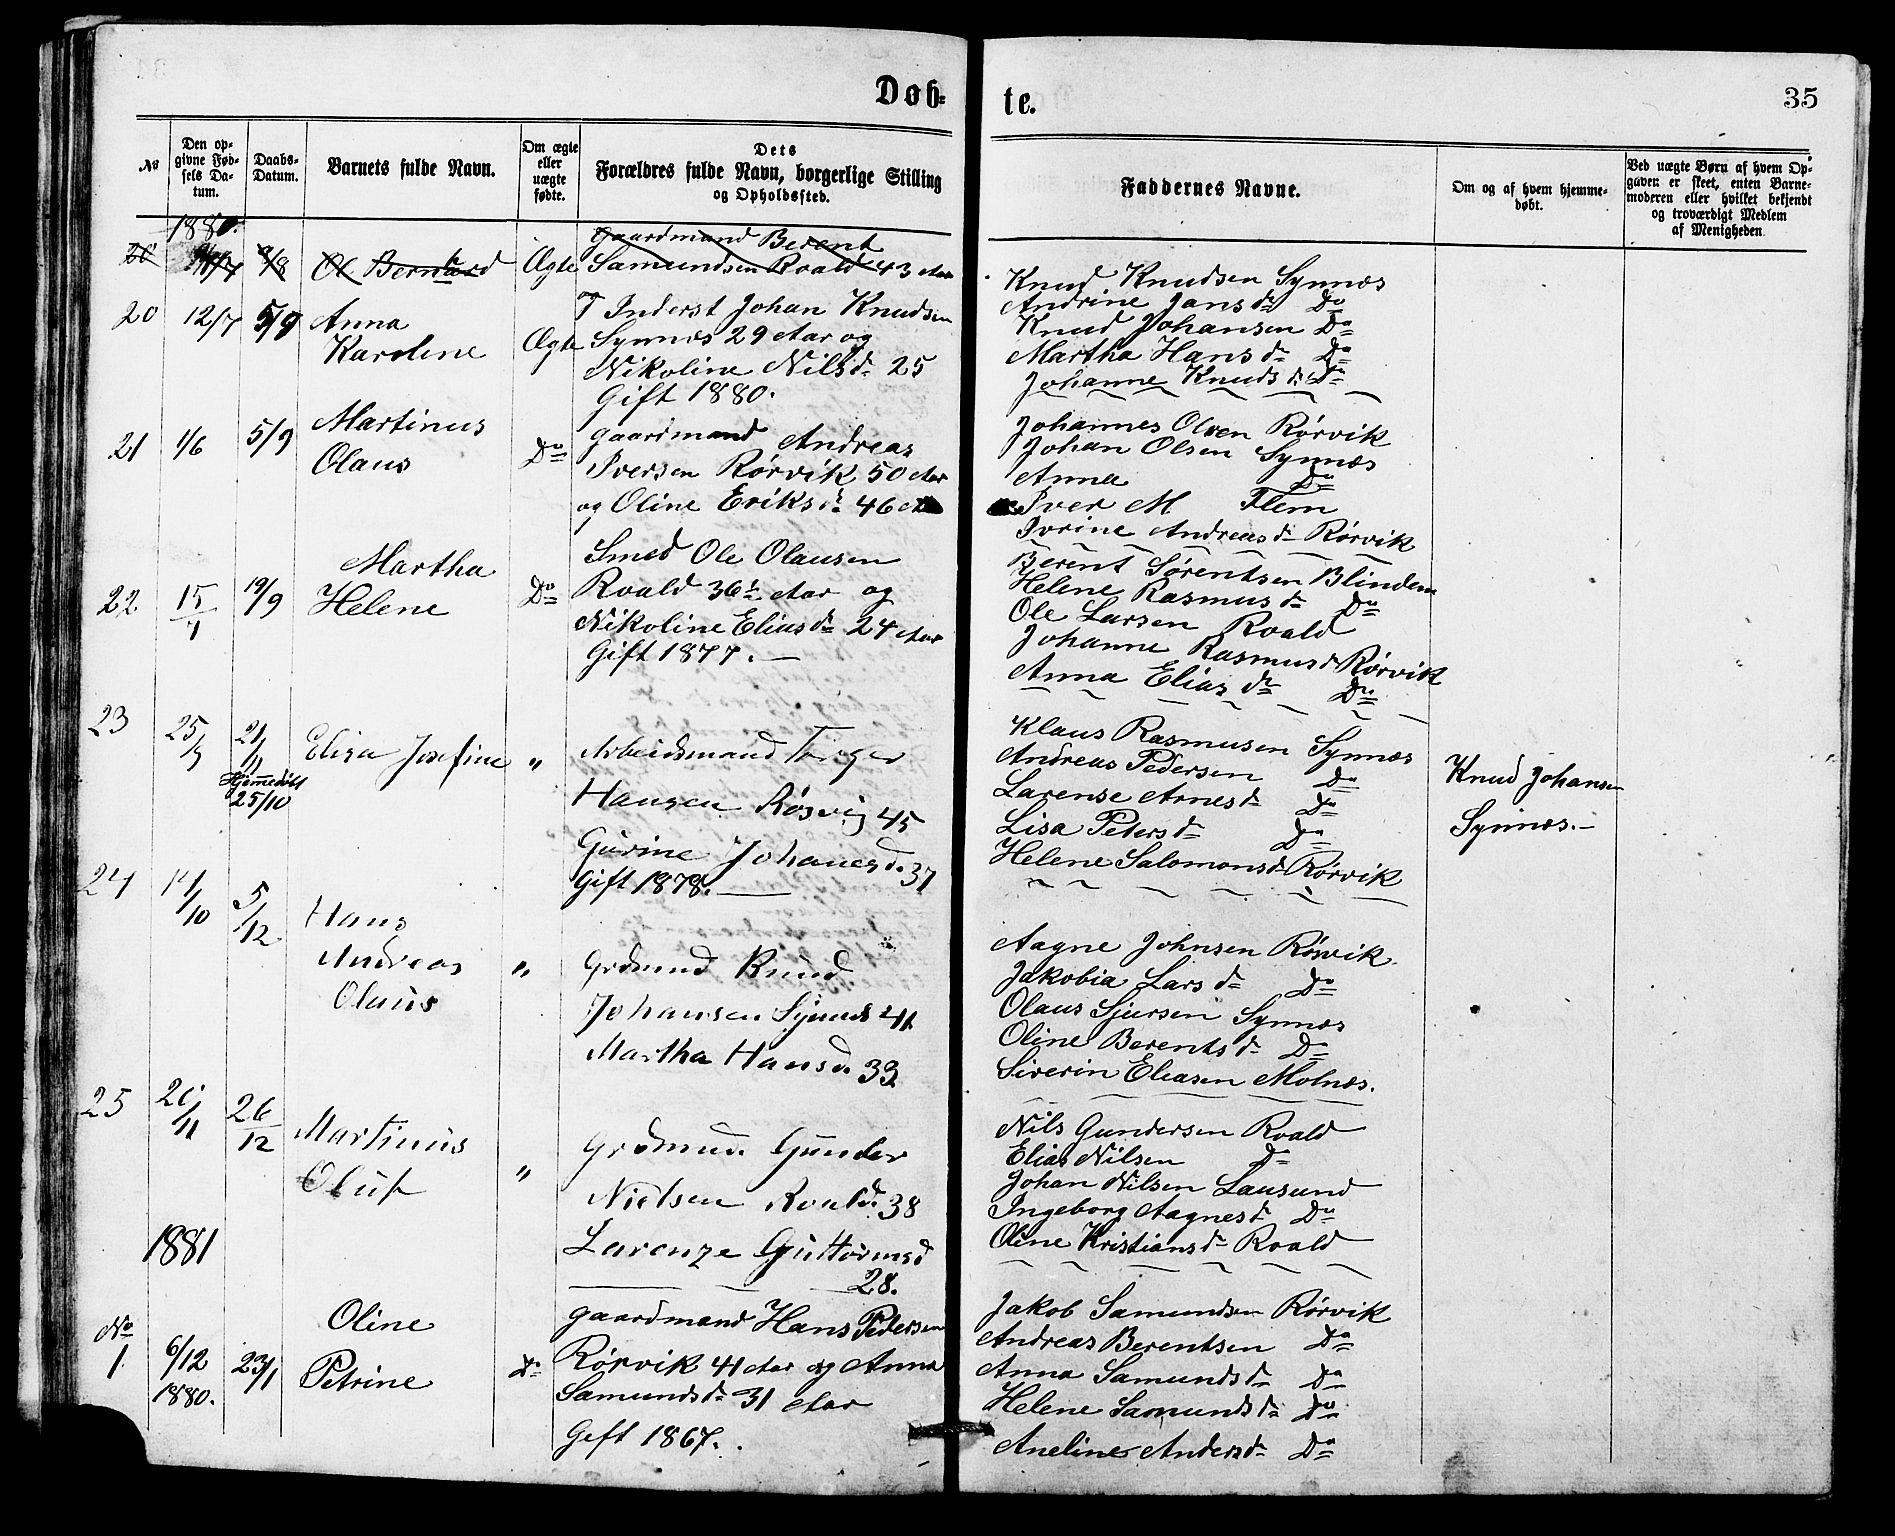 Døb-
te.
35
No
Den op-
givne Fød-
sels Da-
tum.
Daabs-
Datum.
Barnets fulde Navn.
Om ægte
eller
uægte
fødte.
Dets
Forældres fulde Navn, borgerlige Stilling
og Opholdssted.
Faddernes Navne.
Om og af hvem hjemme-
døbt.
Ved uægte Børn af hvem Op-
gaven er skeet, enten Barne-
moderen eller hvilket bekjendt
og troværdigt Medlem
af Menigheden
1880.
20 8/8 Ol Bernhard Ægte
Gaardmand Berent
Samundsen Roald 43 Aar
20 12/7 5/9 Anna
Karoline
Ægte
og Inderst Johan Knudsen
Synnes 29 Aar og
Nikoline Nilsd. 25
Gift 1880.
Knud Knudsen Synnes
Andrine Jansd. Do
Knud Johansen Do
Martha Hansd. Do
Johanne Knudsd. Do
21 1/6 5/9 Martinus
Olaus
Do
gaardmand Andreas
Iversen Rørvik 50 Aar
og Oline Eriksd. 46 A
Johannes Olsen Rørvik
Johan Olsen Synnes
Anna Do
Iver M. Flem
Ivrine Andreasd. Rørvik
22 15/7 19/9 Martha
Helene
Do
Smed Ole Olausen
Roald 36 1/2 Aar og
Nikoline Eliasd. 24 Aar
Gift 1877. —
Berent Sørentsen Blindem
Helene Rasmusd. Do
Ole Larsen Roald
Johanne Rasmusd. Rørvik
Anna Eliasd. Do
23 25/9 21/11
Hjemmedøbt
25/10
Elisa Josefine "
Arbeidsmand Torger
Hansen Røsvig 45
Gurine Johanesd. 37
Gift 1878. —
Klaus Rasmusen Synnes
Andreas Pedersen Do
Larense Arnesd. Do
Lisa Petersd. Do
Helene Salomonsd. Rørvik
Knud Johansen
Synnes. —
24 14/10 5/12 Hans
Andreas
Olaus
"
Grdmnd Knud
Johansen Synnes 41
Martha Hansd. 33
Aagne Johnsen Rørvik.
Jakobia Larsd. Do
Olaus Sjursen Synnes
Oline Berentsd. Do
Siverin Eliasen Molnes.
25 /11 26/12 Martinus
Oluf
"
Grdmnd. Gunder
Nielsen Roald. 38
Larenze Guttormsd
28.
Nils Gundersen Roald
Elias Nilsen Do
Johan Nilsen Lausund
Ingeborg Aagnesd. Do
Oline Kristiansd. Roald
1881
No
1. 6/12
1880.
23/1
Oline
Petrine
Do
gaardmand Hans Pedersen
Rørvik 41 Aar og Anna
Samundsd. 31 Aar
Gift 1867.
Jakob Samundsen Rørvik
Andreas Berentsen Do
Anna Samundsd. Do
Helene Samundsd. Do
Aneline Andersd. Do